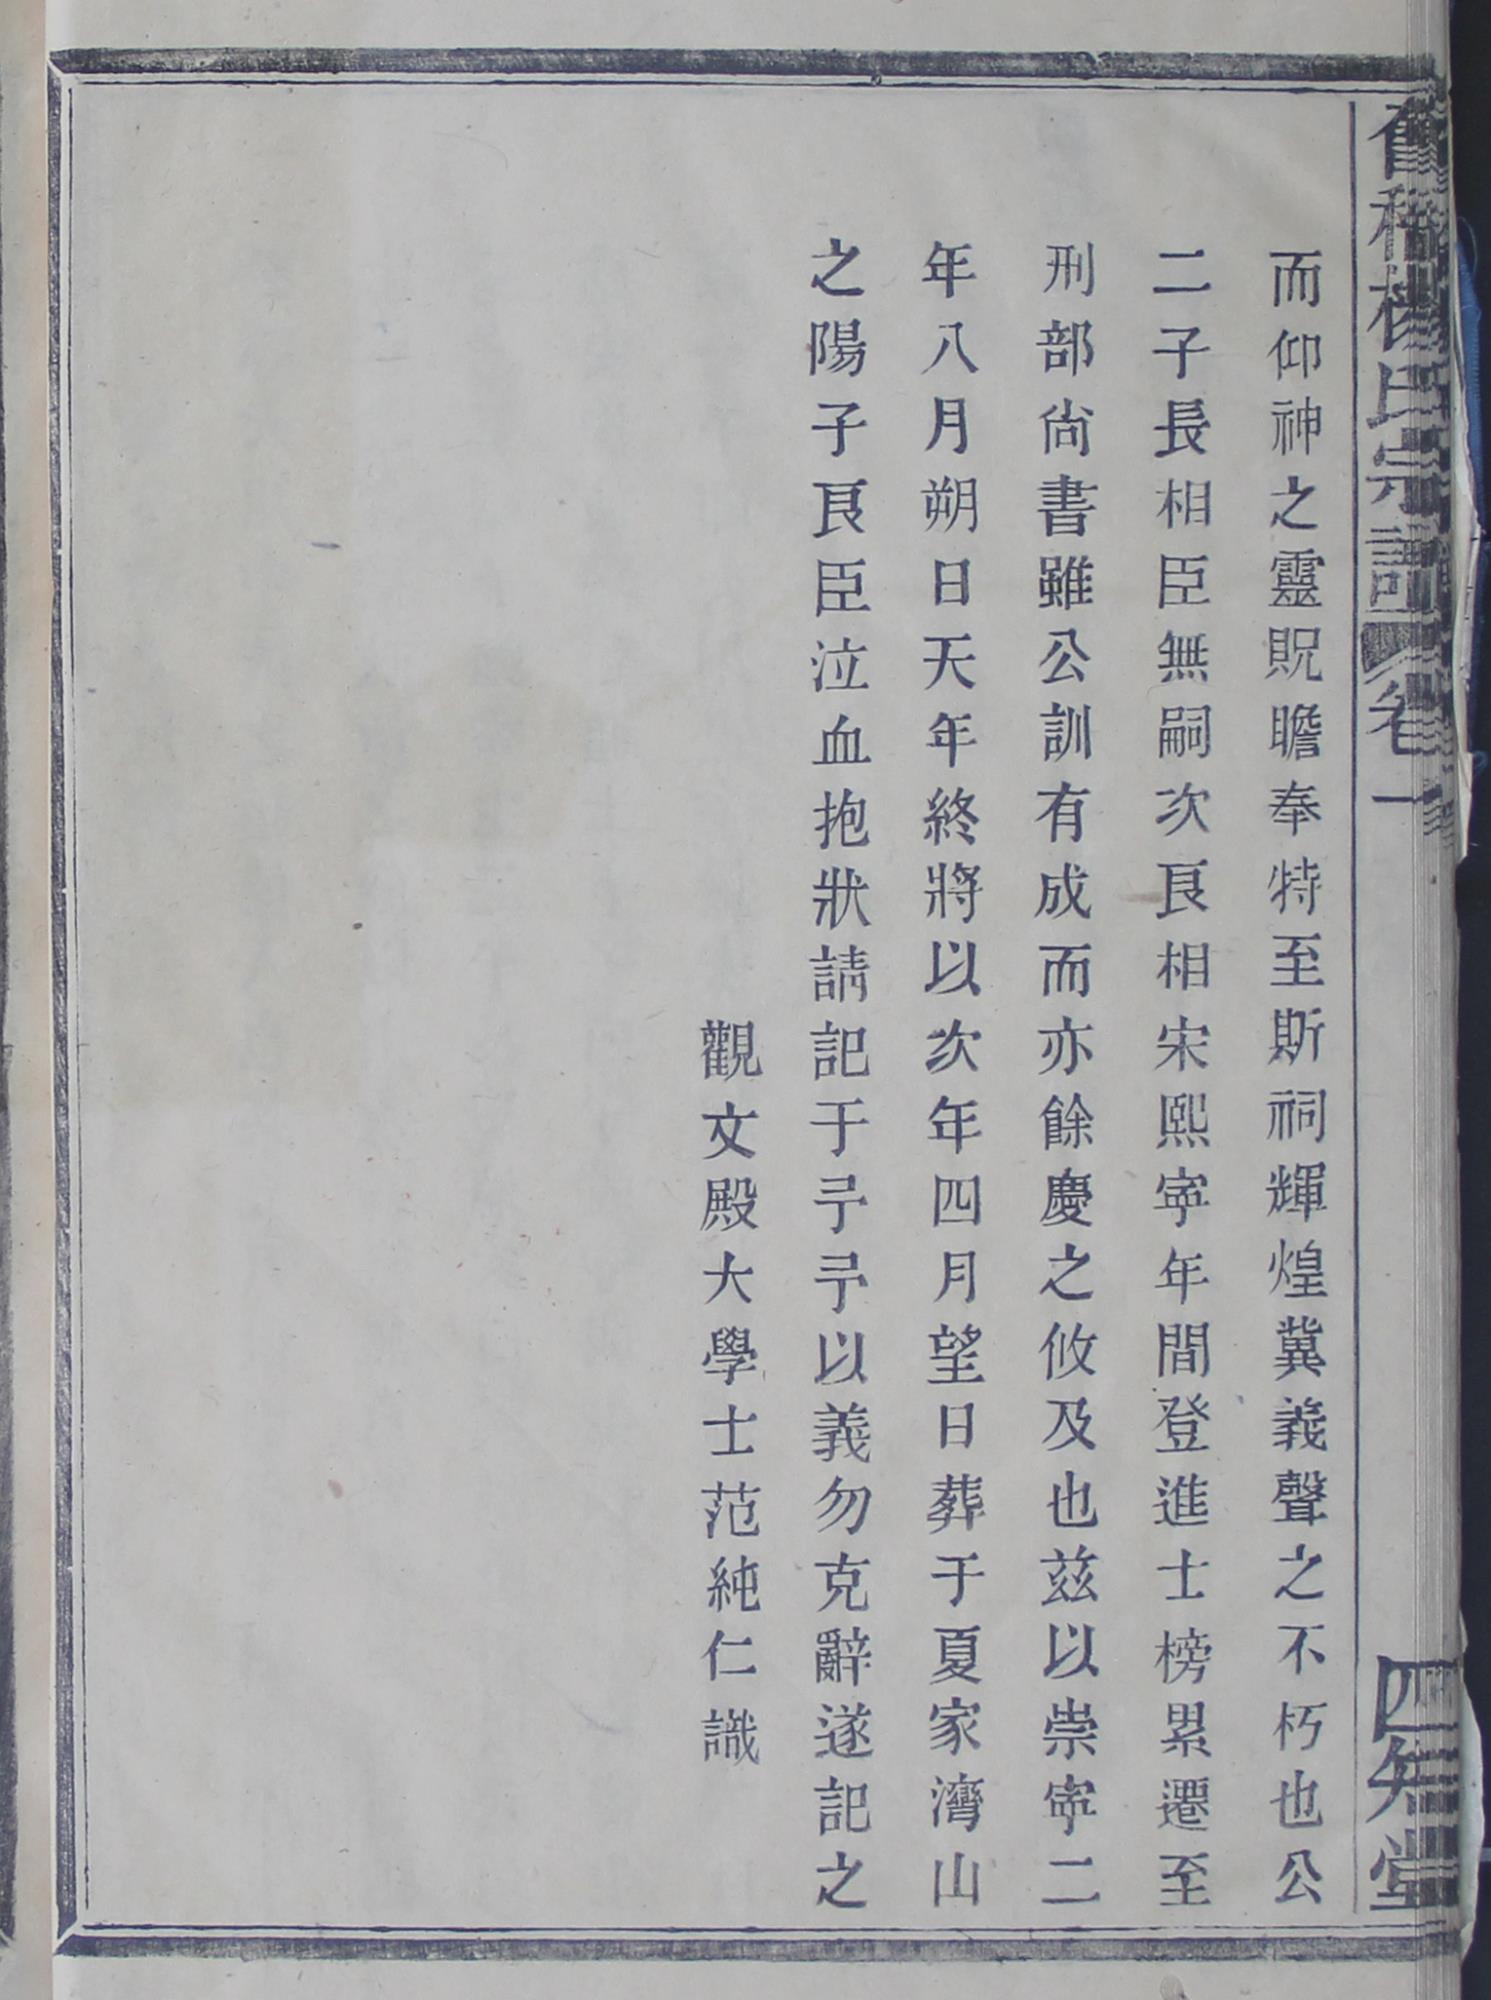 會稽楊氏宗譜 卷一 四知堂
而仰神之靈貺瞻奉特至斯祠輝煌冀義聲之不朽也公
二子長相臣無嗣次良相宋熙寧年間登進士榜累遷至
刑部尚書雖公訓有成而亦餘慶之攸及也茲以崇寧二
年八月朔日天年終將以次年四月望日葬于夏家灣山
之陽子良臣泣血抱狀請記于予予以義勿克辭遂記之
觀文殿大學士范純仁識